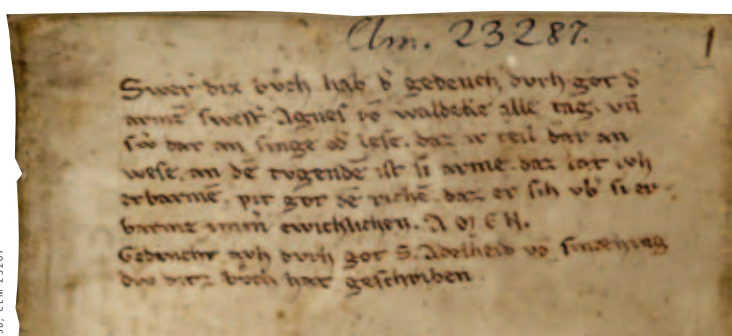 Clm. 23287.
1
Swer diz bůch hab d̾ gedench durh got d̾
armē swest̾ Agnes vō waldekke alle tag. vn̄
sw̾ dar an singe od̾ lese. daz ir teil dar an
wese. an dē tvgendē ist si arme. daz lat ivh
erbarmē. pit got dē richē. daz er sih vb̾ si er
barme ewichlichen. A M E N.
Gedencht avh durh got S. Adelheid vō
div ditz bůch hat geschriben